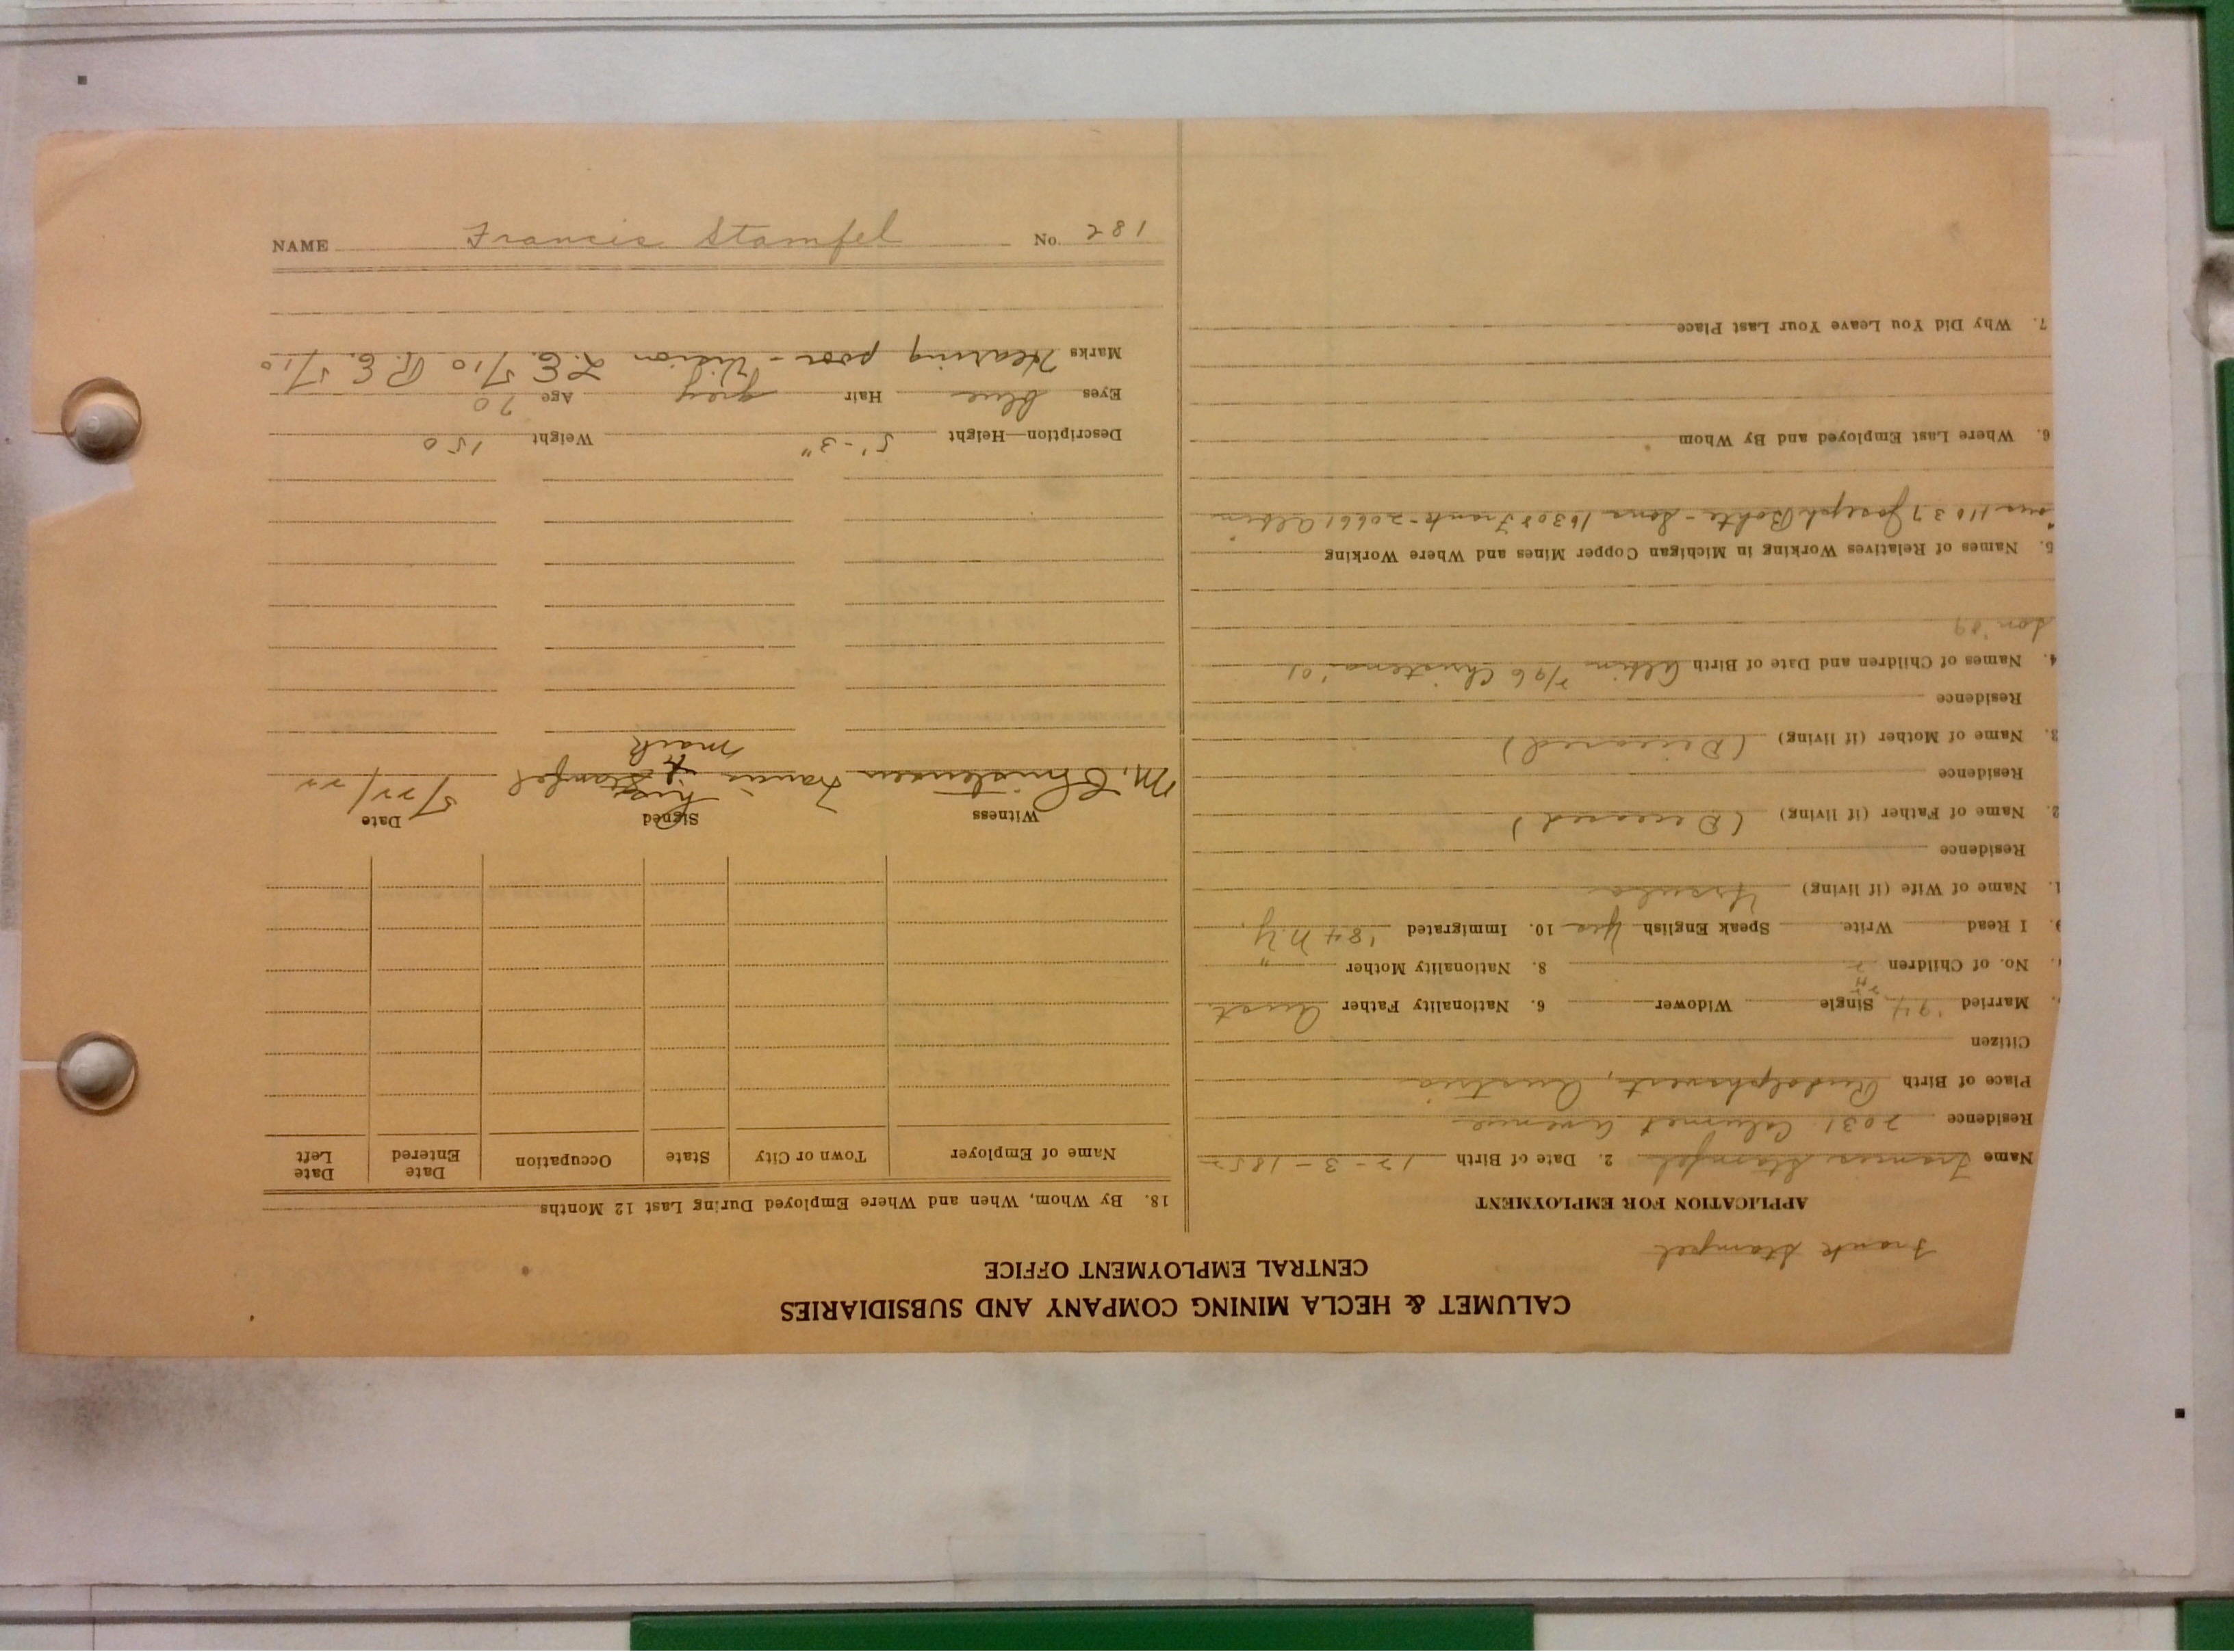 CALUMET & HECLA MINING COMPANY AND SUBSIDIARIES
CENTRAL EMPLOYMENT OFFICE
Frank Stampel
APPLICATION FOR EMPLOYMENT
Name Francis Stampfel 2. Date of Birth 12-3-1852
Residence 2031 Calumet Avenue
Place of Birth Rudolphswert, Austria
Citizen
Married '94 Single Widower 6. Nationality Father Aust
No. of Children 8. Nationality Mother "
9. I Read Write Speak English Yes 10. Immigrated '84 N.Y.
1. Name of Wife (if living) Ursula
Residence
2. Name of Father (if living) (Deceased)
Residence
3. Name of Mother (if living) (Deceased)
Residence
4. Names of Children and Date of Birth Albin 7/96 Christena '01
Son '09
5. Names of Relatives Working in Michigan Copper Mines and Where Working
11037 Joseph Bohte - Sons 16308 Frank - 20661 Albin
6. Where Last Employed and By Whom
7. Why Did You Leave Your Last Place
18. By Whom, When and Where Employed During Last 12 Months
Name of Employer Town or City State Occupation Date Entered Date Left
Witness Signed Date
his
M. Christensen Francis X Stampfel 5/22/22
mark
Description—Height 5'-3" Weight 150
Eyes blue Hair grey Age 70
Marks Hearing poor - Vision L.E. 5/10 R.E. 5/10
NAME Francis Stampfel No. 182